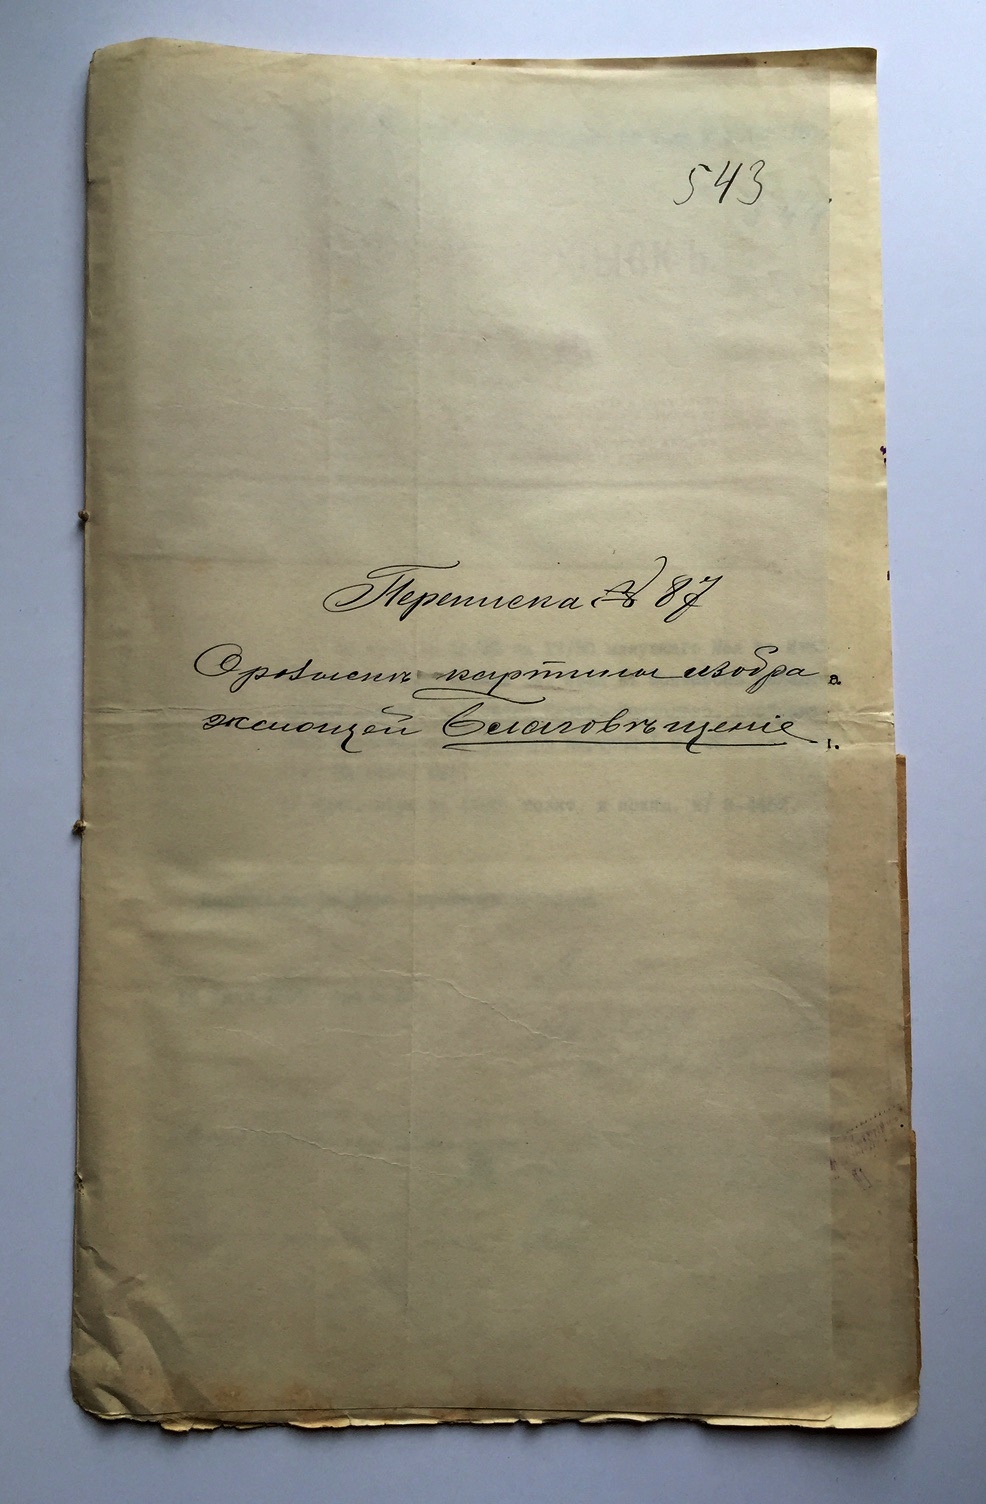 543
Переписка № 87
О розыскѣ картины изобра
жающей Благовѣщеніе